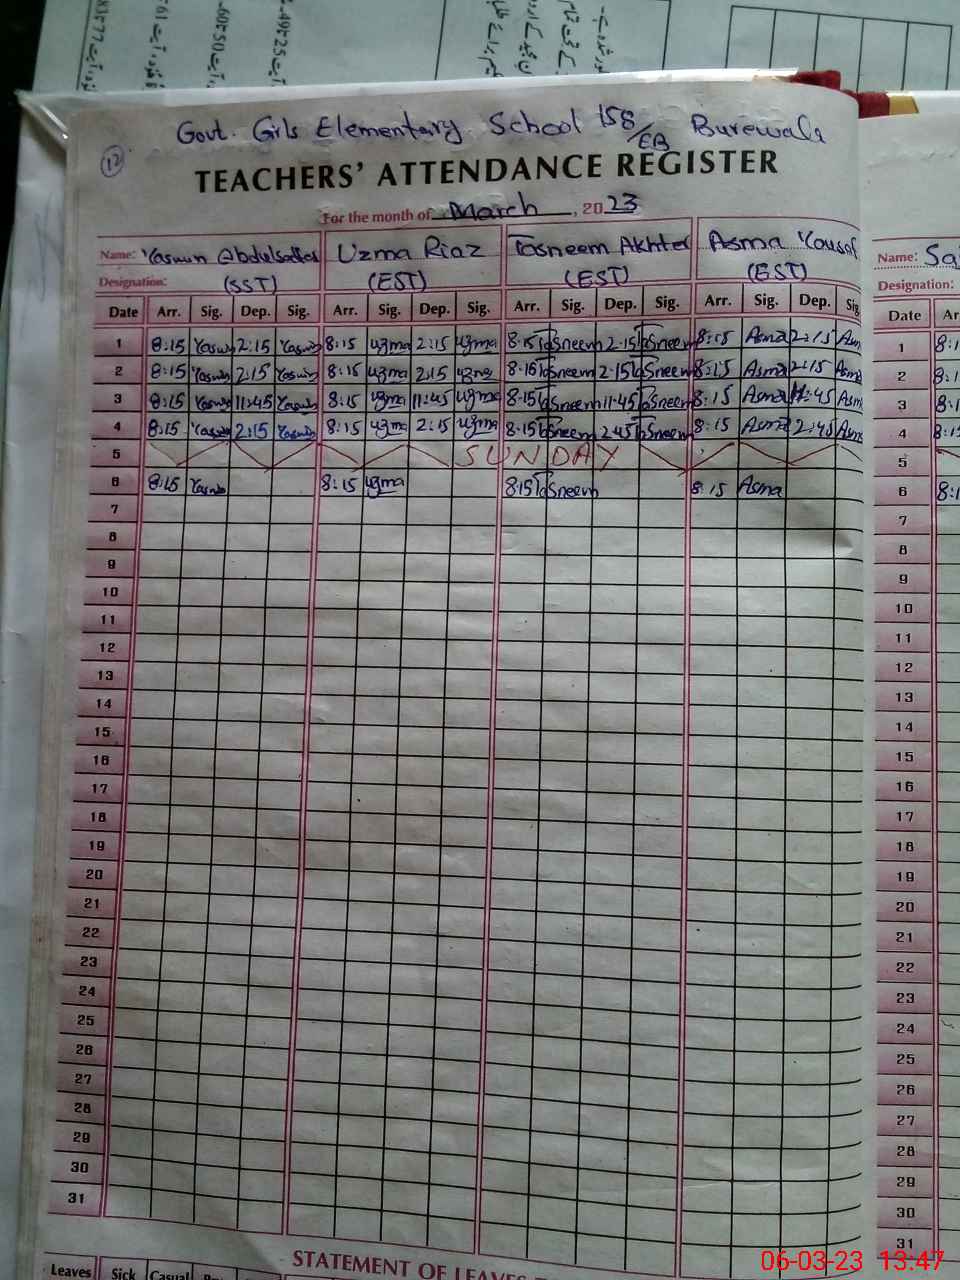 Govt. Girls Elementary School 158/EB Burewala
12
TEACHERS' ATTENDANCE REGISTER
For the month of March, 2023
Name: Yasmin Abdulsattar Uzma Riaz Tasneem Akhter Asma Yousaf Name: Sa
Designation: (SST) (EST) (EST) (EST) Designation:
Date Arr. Sig. Dep. Sig. Arr. Sig. Dep. Sig. Arr. Sig. Dep. Sig. Arr. Sig. Dep. Sig. Date Ar
1 8:15 Yasmin 2:15 Yasmin 8:15 uzma 2:15 uzma 8:15 Tasneem 2:15 Tasneem 8:15 Asma 2:15 Asm 1 8:1
2 8:15 Yasmin 2:15 Yasmin 8:15 uzma 2:15 uzma 8:15 Tasneem 2:15 Tasneem 8:15 Asma 2:15 Asma 2 8:1
3 8:15 Yasmin 11:45 Yasmin 8:15 uzma 11:45 uzma 8:15 Tasneem 11:45 Tasneem 8:15 Asma 11:45 Asm 3 8:1
4 8:15 Yasmin 2:15 Yasmin 8:15 uzma 2:15 uzma 8:15 Tasneem 2:45 Tasneem 8:15 Asma 2:45 Asm 4 8:1
5 SUNDAY 5
6 8:15 Yasmin 8:15 uzma 8:15 Tasneem 8:15 Asma 6 8:1
7 7
8 8
9 9
10 10
11 11
12 12
13 13
14 14
15 15
16 16
17 17
18 18
19 19
20 20
21 21
22 22
23 23
24 24
25 25
26 26
27 27
28 28
29 29
30 30
31 31
STATEMENT OF LEAVES
Leaves Sick Casual
06-03-23 13:47